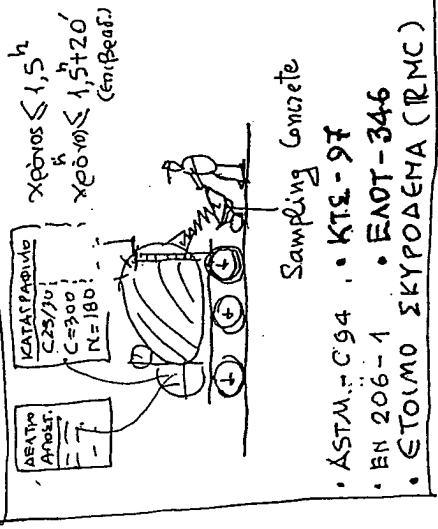 ΔΕΛΤΙΟ
ΑΠΟΣΤ.
ΚΑΤΑΓΡΑΦΙΚΟ
C25/30
C=300
N=180
χρόνος ≤ 1,5h
χρόνος ≤ 1,5h+20'
(επιβραδ.)
Sampling Concrete
• ASTM-C94 • ΚΤΣ-97
• EN 206-1 • ΕΛΟΤ-346
• ΕΤΟΙΜΟ ΣΚΥΡΟΔΕΜΑ (RMC)